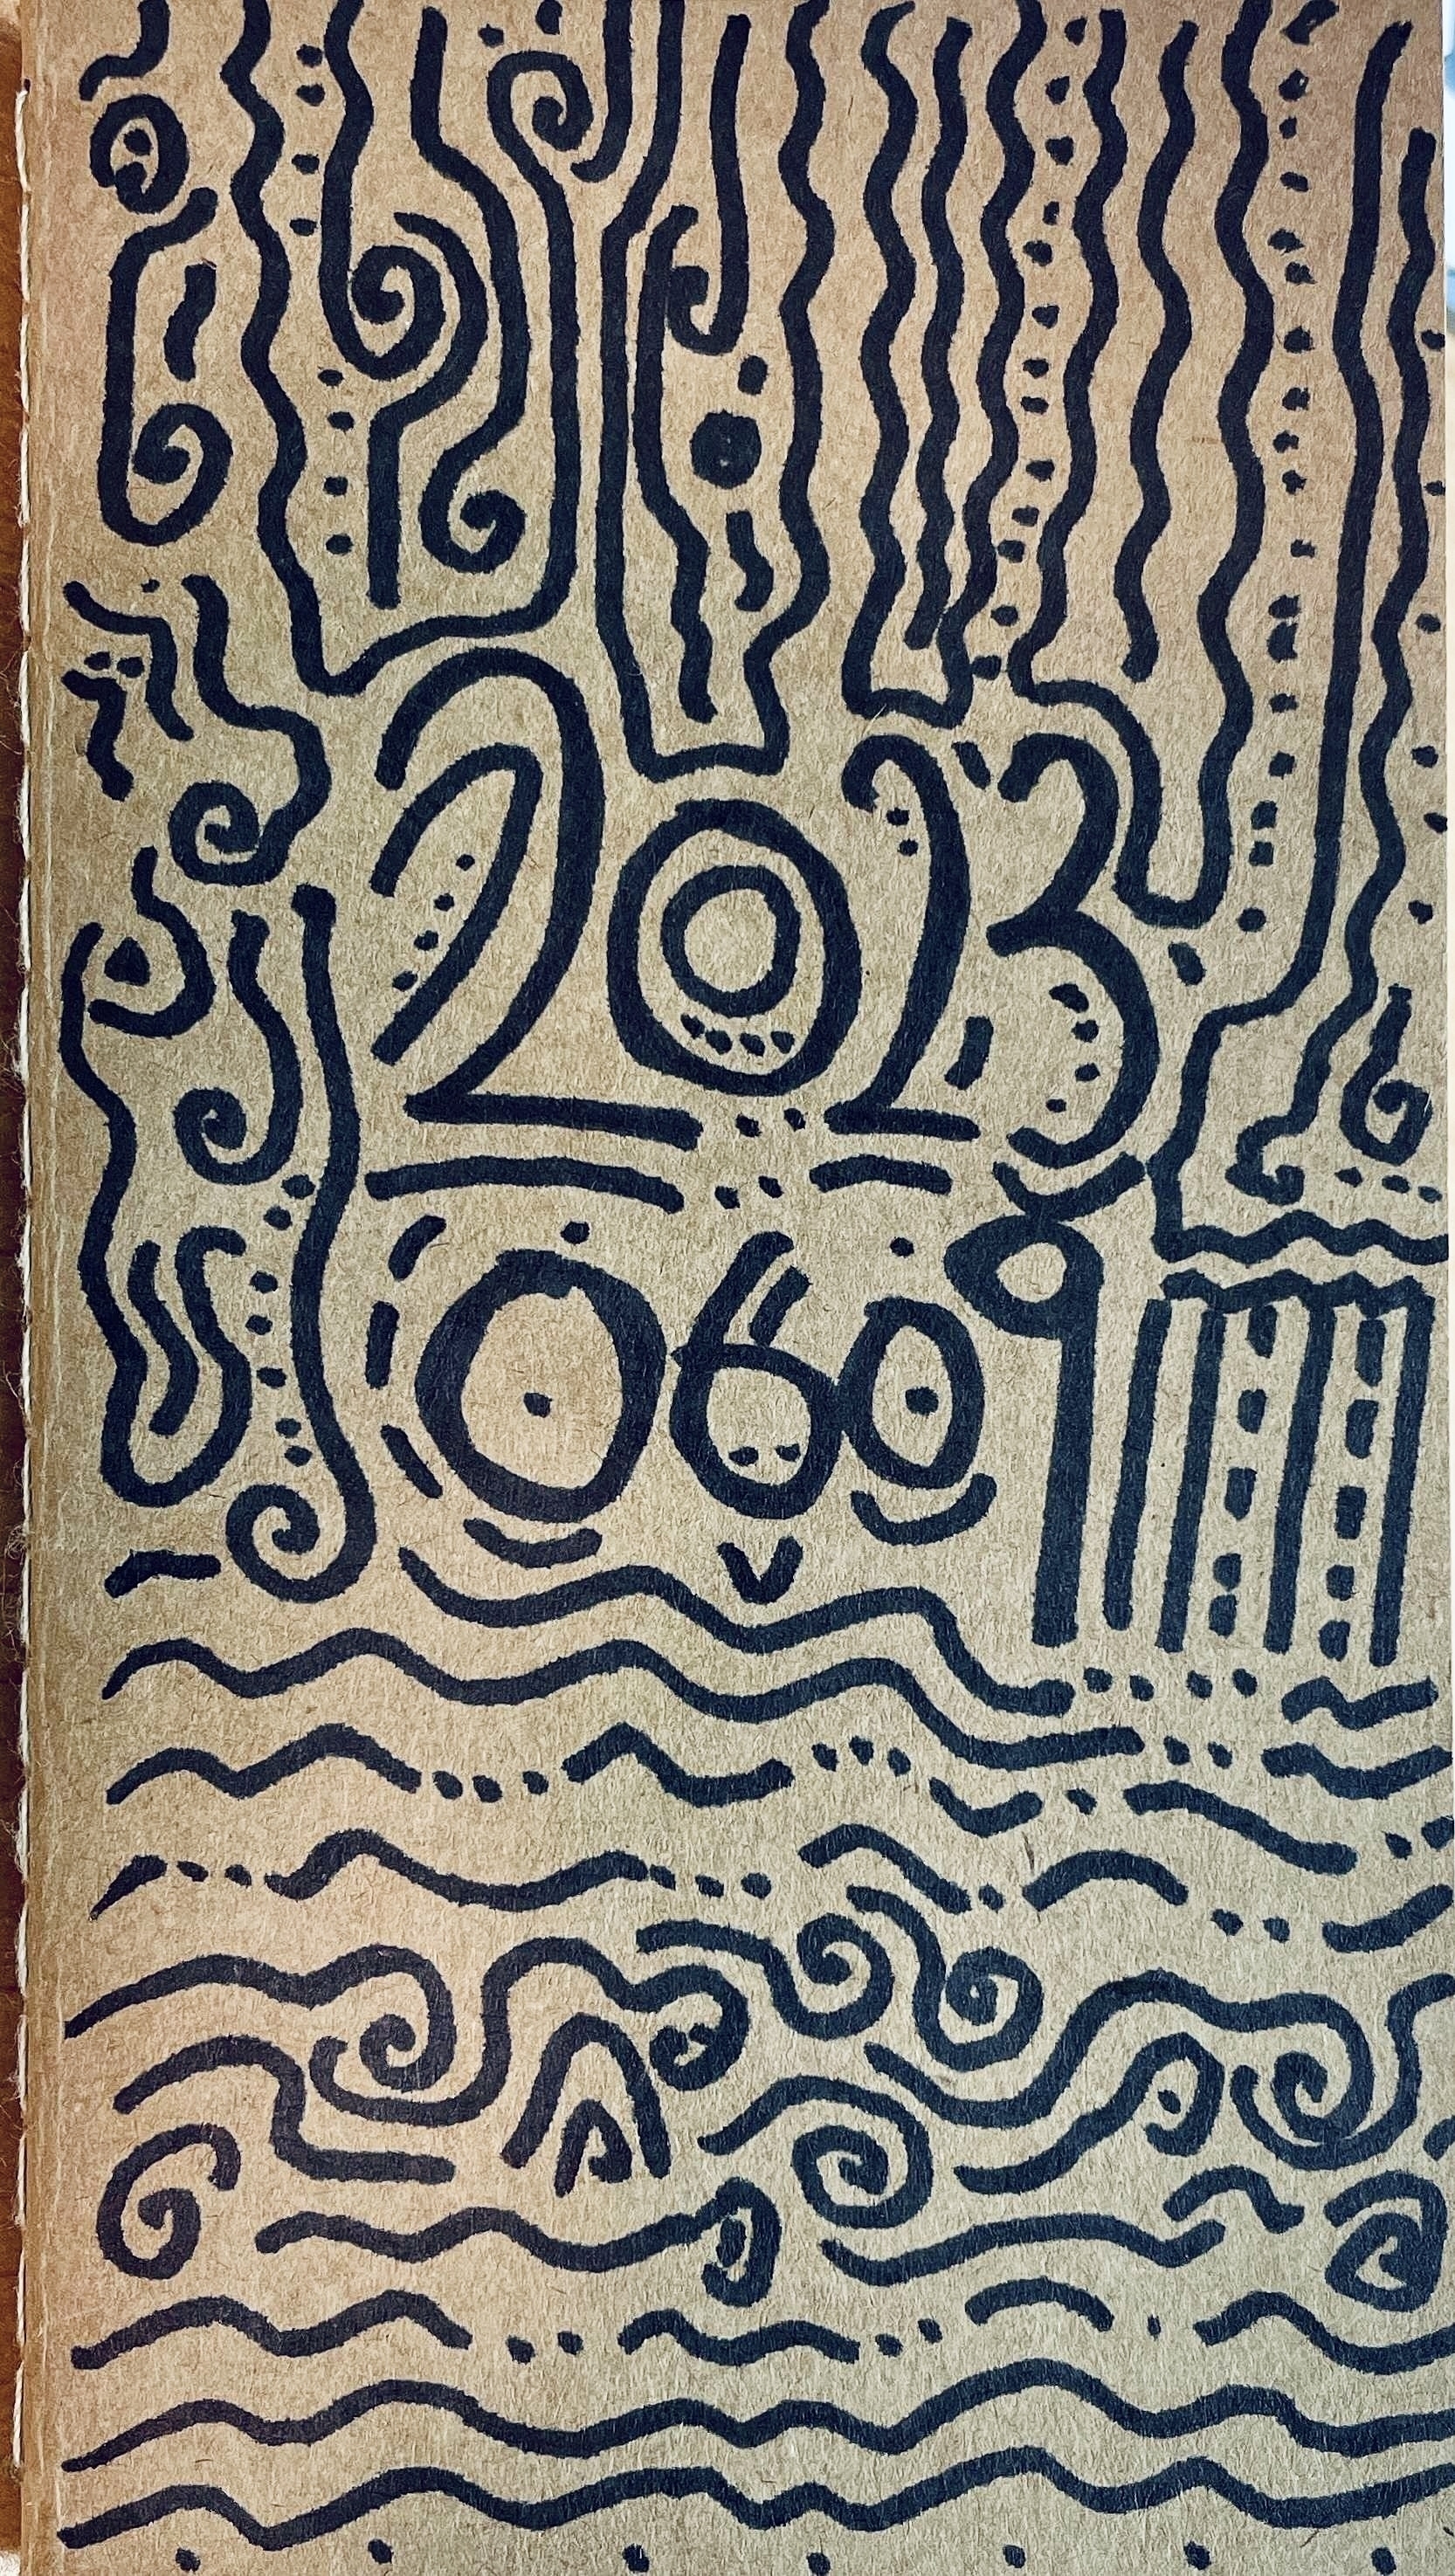 2023
0609